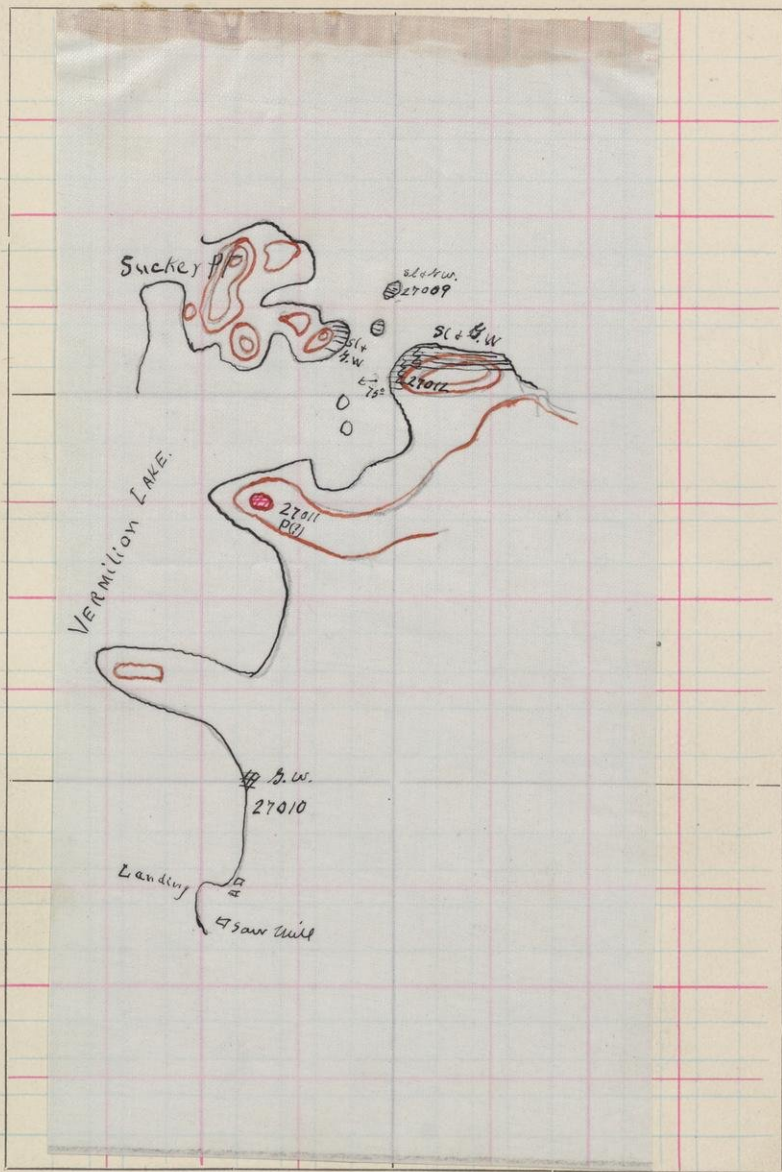 Sucker Pt
Sl & G.W.
27009
Sl & G.W
Sl &
G.W
75°
27012
VERMILION LAKE.
27011
P(?)
G.W.
27010
Landing
Saw Mill